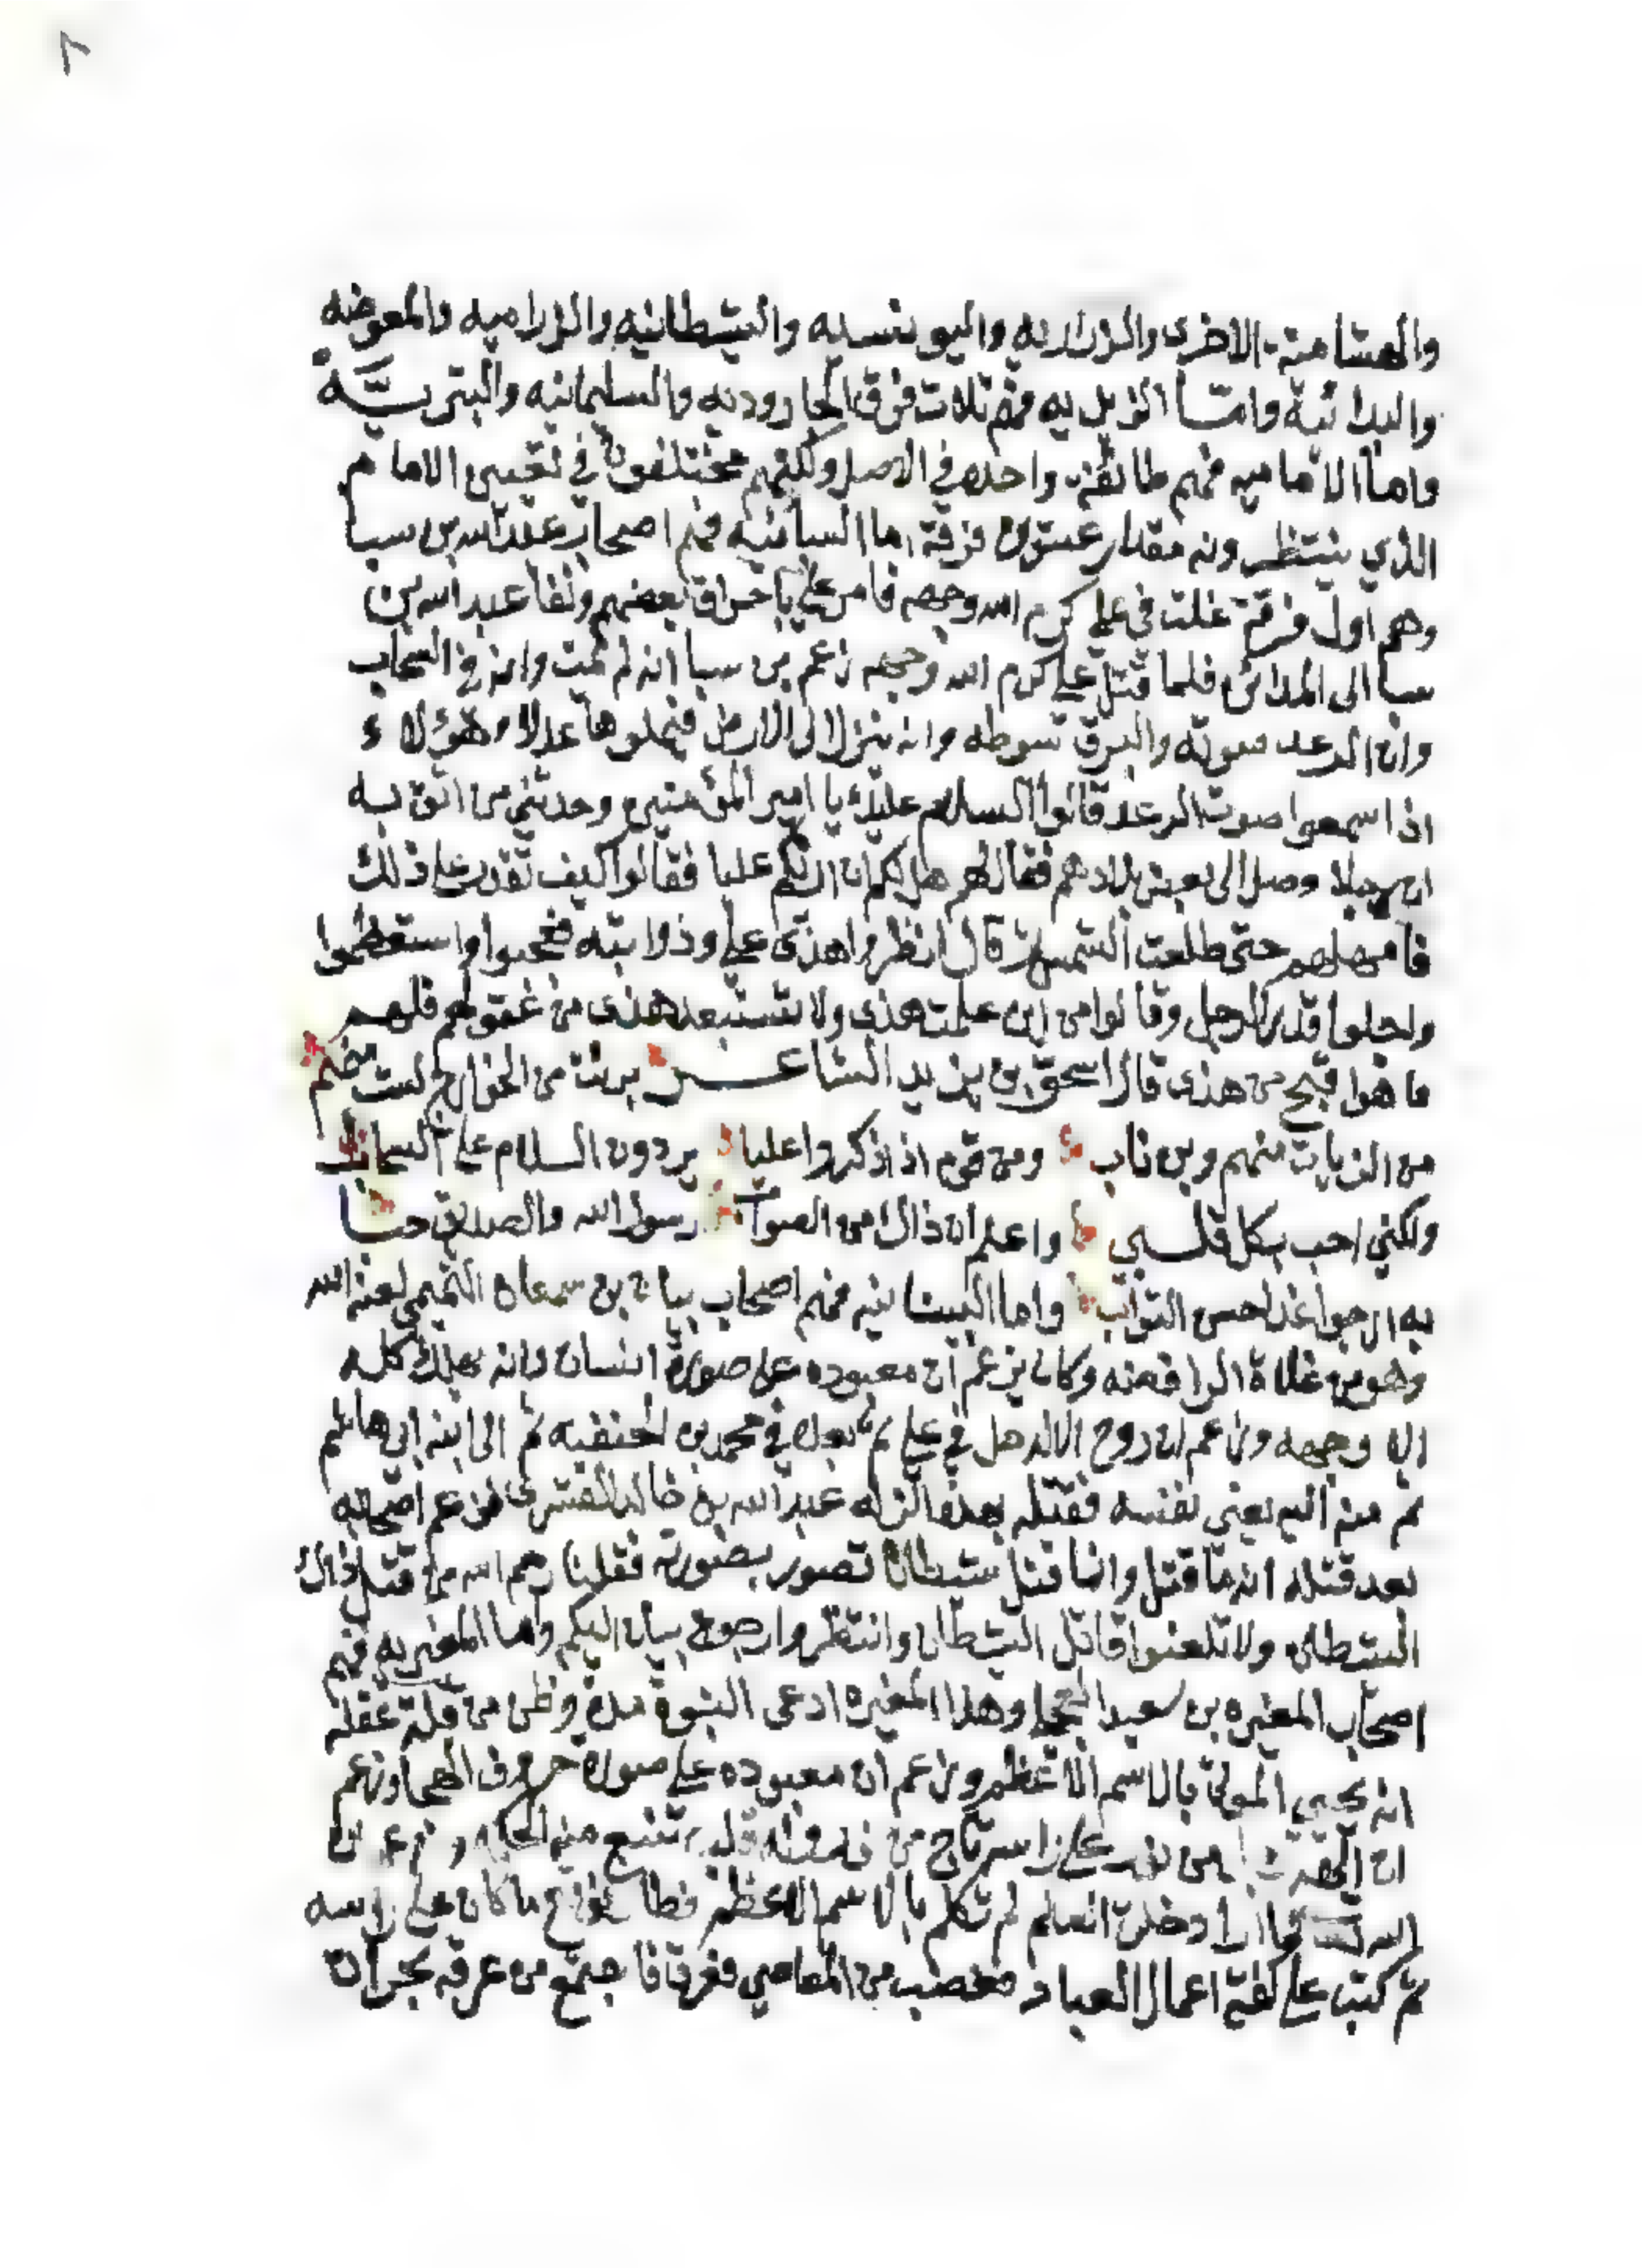 ٨
والهشامية الاخرى والزراريه واليونسيه والشيطانيه والرزاميه والمفوضه
والبدائية وامّا الزيديه فهم ثلاث فرق الجاروديه والسليمانيه والبتريّة
واما الاماميه فهم طائفة واحده في الاصل ولكنهم مختلفون في تعيين الامام
الذي ينتظرونه مقدار عشرين فرقة اما السبائيه فهم اصحاب عبدالله بن سبا
وهم اول فرقة غلت في علي كرم الله وجهه فامر علي باحراق بعضهم ونفا عبدالله بن
سبا الى المدائن فلما قتل علي كرم الله وجهه زعم بن سبا انه لم يمت وانه في السحاب
وان الرعد صوته والبرق سوطه وانه ينزل الى الارض فيملوها عدلا وهؤلاء
اذا سمعوا صوت الرعد قالوا السلام عليك يا امير المؤمنين وحدثني من اثق به
ان رجلا وصل الى بعض بلادهم فقال لهم هل لكم ان اريكم عليا فقالوا كيف تقدر على ذلك
فامهلهم حتى طلعت الشمس قال انظروا هذى علي وذوابته فعجبوا واستعظموا
واجلوا قدر الرجل وقالوا من اين علمت هذى ولا تستبعد هذى من عقولهم فلهم
ما هوا قبح من هذى قال اسحق بن يزيد الشاعر برئت من الخوارج لست منهم
من الزيات منهم وبن ناب ومن قوم اذا ذكروا عليا يردون السلام على السحاب
ولكني احب بكل قلبي واعلم ان ذاك من الصواب رسول الله والصديق حبا
به ارجوا غدا حسن الثواب واما البيانيه فهم اصحاب بيان بن سمعان التميمي لعنه الله
وهو من غلاة الرافضه وكان يزعم ان معبوده على صورة انسان وانه يهلك كله
الا وجهه وزعم ان روح الاله حل في علي ثم بعده في محمد بن الحنفيه ثم الى ابنه ابي هاشم
ثم منه اليه يعني نفسه فقتله بعد عبد الله بن خالد القسري فزعم اصحابه
بعد قتله انه ما قتل وانما قتل شيطانا تصور بصورته فقلنا رحم الله من قتل ذاك
الشيطان ولا تلعنوا قاتل الشيطان وانتظروا رجوع بيان اليكم واما المغيريه فهم
اصحاب المغيره بن سعيد العجلي وهذا المغيره ادعى النبوة مدة وظن من قلة عقله
انه يحيي الموتى بالاسم الاعظم وزعم ان معبوده على صورة حروف الهجا وزعم
ان من نور على راسه تاج من تنبع منه الحكمه وزعم ان
الله لما اراد خلق العالم تكلم بالاسم الاعظم فطار فوقع ما كان على راسه
ثم كتب على كفه اعمال العباد فغضب من المعاصي فعرق فاجتمع من عرقه بحران